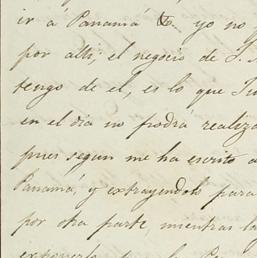 ir á Panamá &. yo no
por allí; el negocio de S.
tengo de el, es lo que
en el dia no podrá realiza
pues segun me ha escrito a
Panamá, y extrayendolo para
por otra parte, mientras la